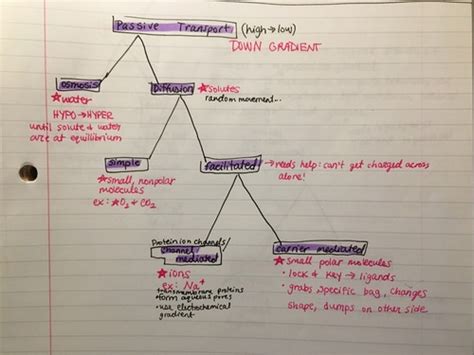 Passive Transport (high→low)
DOWN GRADIENT
osmosis
★water
HYPO→HYPER
until solute & water
are at equilibrium
Diffusion ★solutes
random movement...
simple
★small, nonpolar
molecules
ex: ★O₂ & CO₂
facilitated → needs help: can't get charged across
alone!
Protein ion channels/
channel
mediated
★ions
ex: Na⁺
transmembrane proteins
•form aqueous pores
•use electrochemical
gradient
carrier mediated
★small polar molecules
• lock & key → ligands
• grabs specific bag, changes
shape, dumps on other side